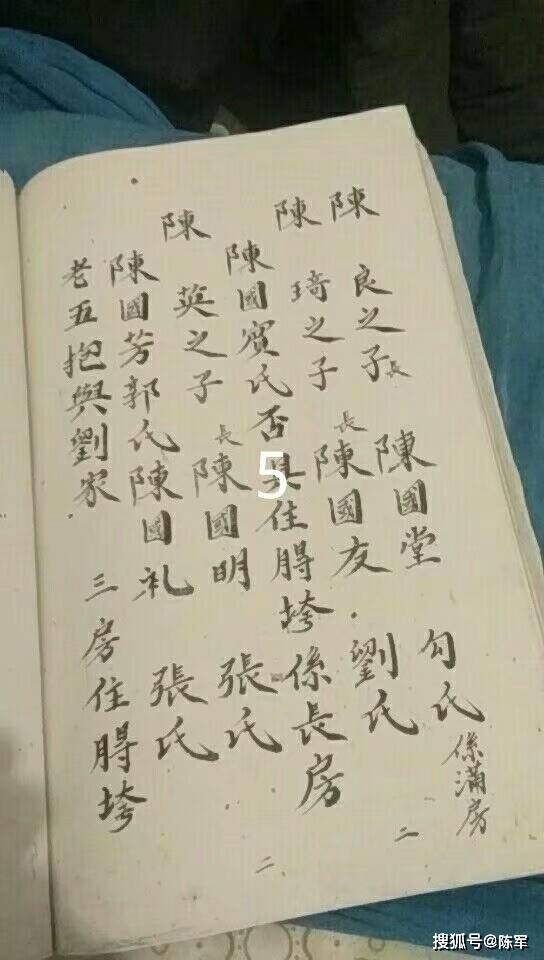 陳良之子長陳國堂勾氏係滿房
陳琦之子長陳國友劉氏二
陳國寳氏否具住䏰垮係長房
陳英之子長陳國明張氏
陳國芳郭氏陳國礼張氏二
老五抱與劉家三房住䏰垮
5
搜狐号@陈军